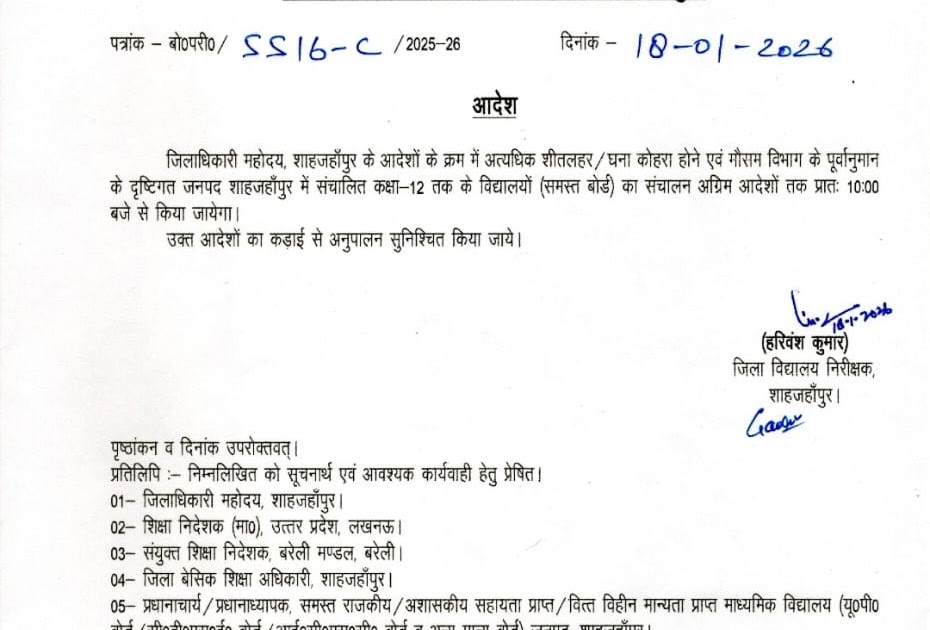 पत्रांक – बो०परी०/ 5516-C /2025-26
दिनांक – 18-01-2026
आदेश
जिलाधिकारी महोदय, शाहजहाँपुर के आदेशों के क्रम में अत्यधिक शीतलहर/घना कोहरा होने एवं मौसम विभाग के पूर्वानुमान
के दृष्टिगत जनपद शाहजहाँपुर में संचालित कक्षा–12 तक के विद्यालयों (समस्त बोर्ड) का संचालन अग्रिम आदेशों तक प्रातः 10:00
बजे से किया जायेगा।
उक्त आदेशों का कड़ाई से अनुपालन सुनिश्चित किया जाये।
18-1-2026
(हरिवंश कुमार)
जिला विद्यालय निरीक्षक,
शाहजहाँपुर।
पृष्ठांकन व दिनांक उपरोक्तवत्।
प्रतिलिपि :– निम्नलिखित को सूचनार्थ एवं आवश्यक कार्यवाही हेतु प्रेषित।
01– जिलाधिकारी महोदय, शाहजहाँपुर।
02– शिक्षा निदेशक (मा0), उत्तर प्रदेश, लखनऊ।
03– संयुक्त शिक्षा निदेशक, बरेली मण्डल, बरेली।
04– जिला बेसिक शिक्षा अधिकारी, शाहजहाँपुर।
05– प्रधानाचार्य/प्रधानाध्यापक, समस्त राजकीय/अशासकीय सहायता प्राप्त/वित्त विहीन मान्यता प्राप्त माध्यमिक विद्यालय (यू0पी0